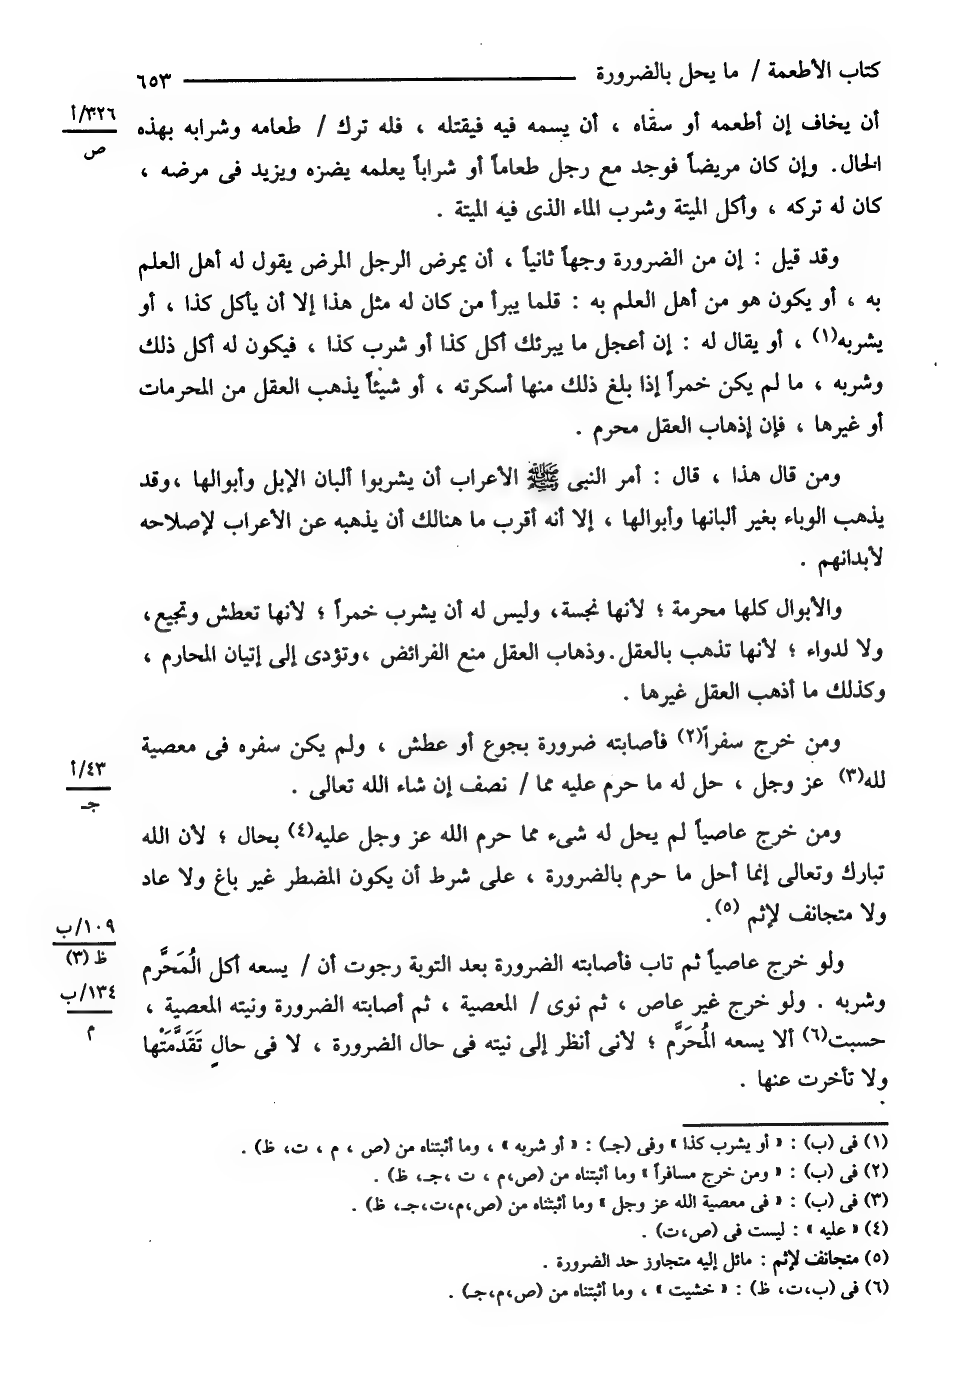 كتاب الأطعمة / ما يحل بالضرورة ــــــــــــــــ ٦٥٣
٣٢٦/أ
ص
أن يخاف إن أطعمه أو سقاه ، أن يسمه فيه فيقتله ، فله ترك / طعامه وشرابه بهذه
الحال. وإن كان مريضاً فوجد مع رجل طعاماً أو شراباً يعلمه يضره ويزيد فى مرضه ،
كان له تركه ، وأكل الميتة وشرب الماء الذى فيه الميتة .
وقد قيل : إن من الضرورة وجهاً ثانياً ، أن يمرض الرجل المرض يقول له أهل العلم
به ، أو يكون هو من أهل العلم به : قلما يبرأ من كان له مثل هذا إلا أن يأكل كذا ، أو
يشربه(١) ، أو يقال له : إن أعجل ما يبرئك أكل كذا أو شرب كذا ، فيكون له أكل ذلك
وشربه ، ما لم يكن خمراً إذا بلغ ذلك منها أسكرته ، أو شيئاً يذهب العقل من المحرمات
أو غيرها ، فإن إذهاب العقل محرم .
ومن قال هذا ، قال : أمر النبى ﷺ الأعراب أن يشربوا ألبان الإبل وأبوالها ،وقد
يذهب الوباء بغير ألبانها وأبوالها ، إلا أنه أقرب ما هنالك أن يذهبه عن الأعراب لإصلاحه
لأبدانهم .
والأبوال كلها محرمة ؛ لأنها نجسة، وليس له أن يشرب خمراً ؛ لأنها تعطش وتجيع،
ولا لدواء ؛ لأنها تذهب بالعقل.وذهاب العقل منع الفرائض ،وتؤدى إلى إتيان المحارم ،
وكذلك ما أذهب العقل غيرها .
ومن خرج سفراً(٢) فأصابته ضرورة بجوع أو عطش ، ولم يكن سفره فى معصية
٤٣/أ
جـ
لله(٣) عز وجل ، حل له ما حرم عليه مما / نصف إن شاء الله تعالى .
ومن خرج عاصياً لم يحل له شىء مما حرم الله عز وجل عليه(٤) بحال ؛ لأن الله
تبارك وتعالى إنما أحل ما حرم بالضرورة ، على شرط أن يكون المضطر غير باغ ولا عاد
ولا متجانف لإثم (٥).
١٠٩/ب
ظ (٣)
ولو خرج عاصياً ثم تاب فأصابته الضرورة بعد التوبة رجوت أن / يسعه أكل الُمَحَرَّم
١٣٤/ب
م
وشربه . ولو خرج غير عاص ، ثم نوى / المعصية ، ثم أصابته الضرورة ونيته المعصية ،
حسبت(٦) ألا يسعه الُمحَرَّم ؛ لأنى أنظر إلى نيته فى حال الضرورة ، لا فى حالٍ تَقَدَّمَتْها
ولا تأخرت عنها .
(١) فى (ب) : « أو يشرب كذا » وفى (جـ) : « أو شربه » ، وما أثبتناه من (ص ، م ، ت، ظ) .
(٢) فى (ب) : « ومن خرج مسافراً » وما أثبتناه من (ص،م ، ت ،جـ، ظ) .
(٣) فى (ب) : « فى معصية الله عز وجل » وما أثبتناه من (ص،م،ت،جـ، ظ) .
(٤) « عليه » : ليست فى (ص،ت) .
(٥) متجانف لإثم : مائل إليه متجاوز حد الضرورة .
(٦) فى (ب،ت، ظ) : « خشيت » ، وما أثبتناه من (ص،م،جـ) .